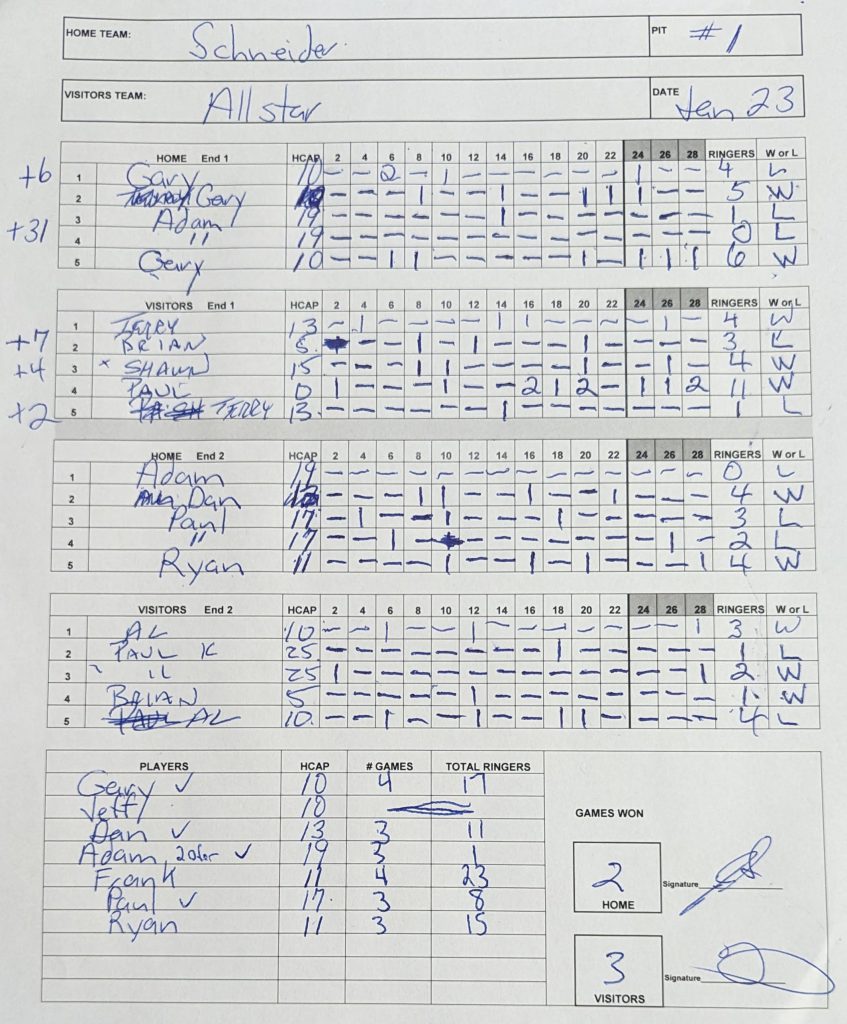 HOME TEAM: Schneider PIT #1
VISITORS TEAM: Allstar DATE Jan 23
HOME End 1 HCAP 2 4 6 8 10 12 14 16 18 20 22 24 26 28 RINGERS W or L
+6 1 Gary 10 - - 2 - 1 - - - - - - 1 - - 4 L
2 Gary - - - 1 - - 1 - - 1 1 1 - - 5 W
+31 3 Adam 19 - - - - - - 1 - - - - - - - 1 L
4 " 19 - - - - - - - - - - - - - - 0 L
5 Gary 10 - - 1 1 - - - - - 1 - 1 1 1 6 W
VISITORS End 1 HCAP 2 4 6 8 10 12 14 16 18 20 22 24 26 28 RINGERS W or L
1 TERRY 13 - 1 - - - - 1 1 - - - - 1 - 4 W
+7 2 BRIAN 5 - - 1 - 1 - - - 1 - - - - 3 L
+4 3 x SHAWN 15 - - - 1 1 - - - - 1 - - 1 - 4 W
4 PAUL 0 1 - - - 1 - - 2 1 2 - 1 1 2 11 W
+2 5 TERRY 13 - - - - - - 1 - - - - - - - 1 L
HOME End 2 HCAP 2 4 6 8 10 12 14 16 18 20 22 24 26 28 RINGERS W or L
1 Adam 19 - - - - - - - - - - - - - - 0 L
2 Dan - - - 1 1 - - 1 - - 1 - - - 4 W
3 Paul 17 - 1 - - 1 - - - 1 - - - - - 3 L
4 " 17 - - 1 - - - - - - - - 1 - 2 L
5 Ryan 11 - - - - 1 - - 1 - 1 - - - 1 4 W
VISITORS End 2 HCAP 2 4 6 8 10 12 14 16 18 20 22 24 26 28 RINGERS W or L
1 AL 10 - - 1 - - 1 - - - - - - - 1 3 W
2 PAUL K 25 - - - - - - - - 1 - - - - - 1 L
3 " 25 1 - - - - - - - - - - - - 1 2 W
4 BRIAN 5 - - - - - 1 - - - - - - - - 1 W
5 AL 10 - - 1 - - 1 - - 1 1 - - - - 4 L
PLAYERS HCAP # GAMES TOTAL RINGERS
Gary ✓ 10 4 17
Jeff 10
Dan ✓ 13 3 11
Adam 20for ✓ 19 3 1
Frank 11 4 23
Paul ✓ 17 3 8
Ryan 11 3 15
GAMES WON
2 Signature
HOME
3 Signature
VISITORS